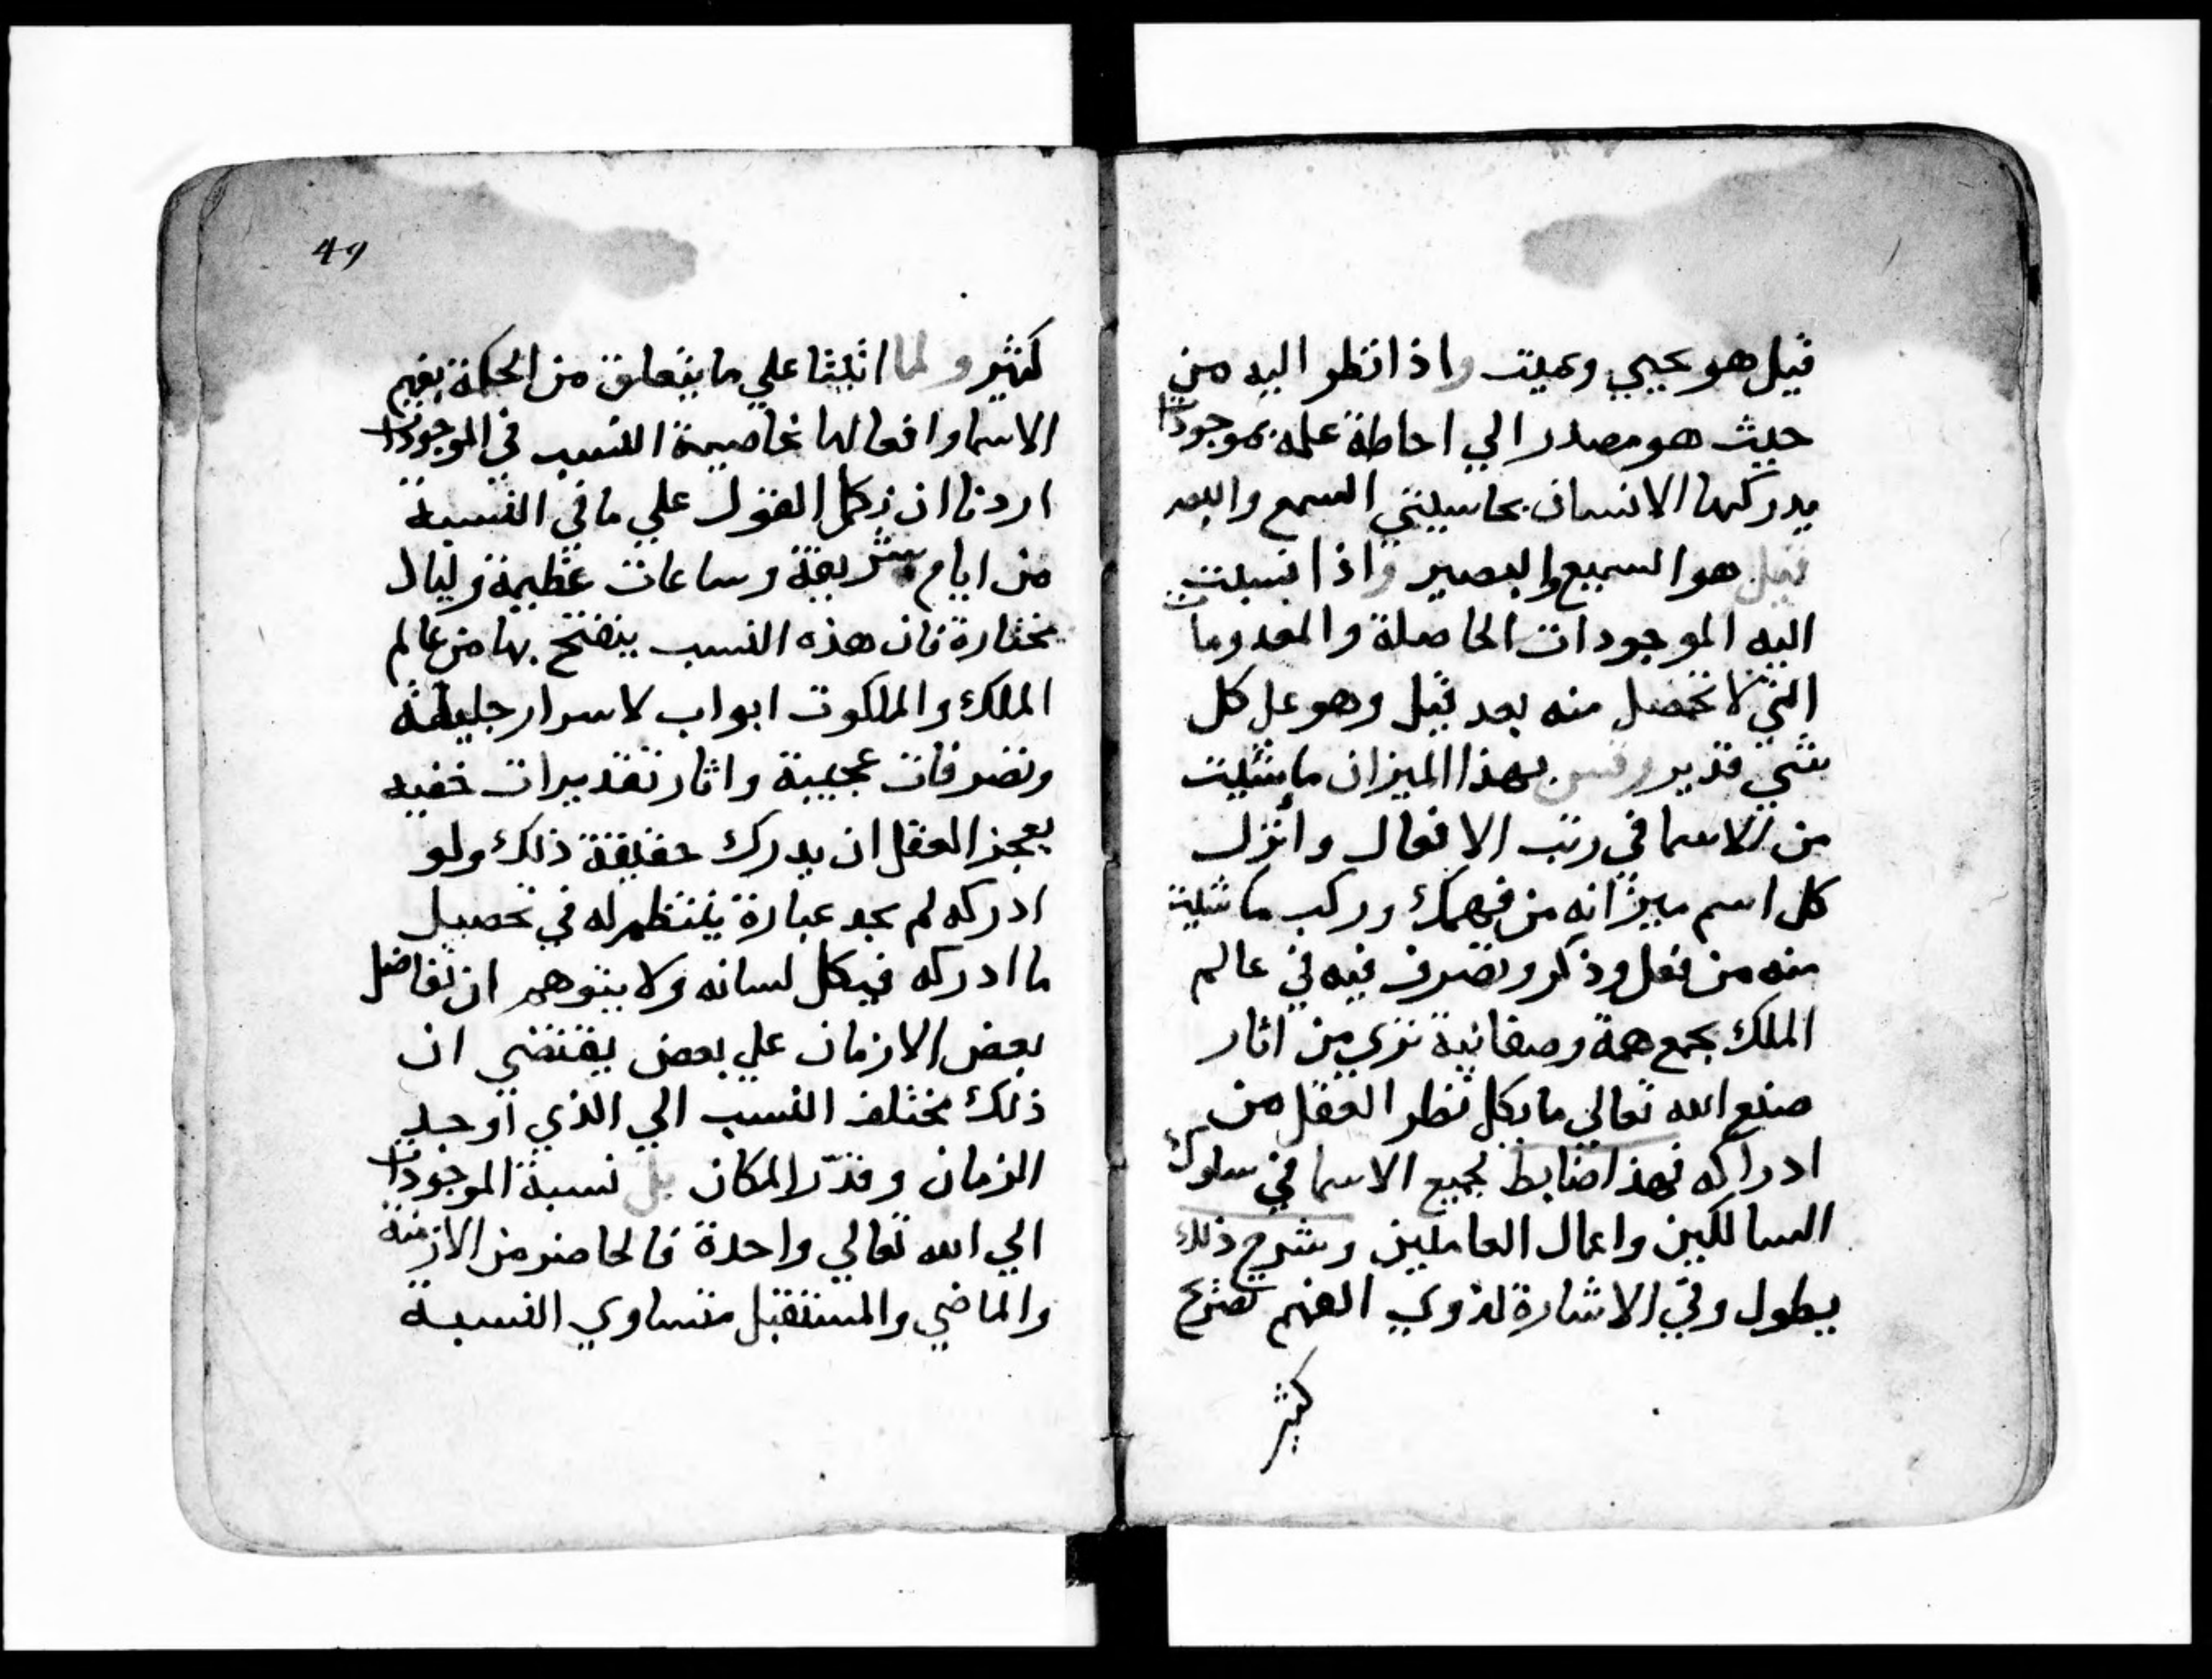 قيل هو يحيي ويميت واذا نظر اليه من
حيث هو مصدر الي احاطة علمه بموجودات
يدركها الانسان بحاسيتي السمع والبصر
قيل هو السميع والبصير واذا نسبت
اليه الموجودات الحاصلة والمعدومات
التي لا تحصل منه بعد قيل وهو علي كل
شي قدير وقس بهذا الميزان ما شيت
من الاسما في رتب الافعال وانزل
كل اسم ميزانه من فهمك وركب ما شيت
منه من فعل وذكر وتصرف فيه في عالم
الملك بجمع همة وصفانية تري من اثار
صنع الله تعالي ما يكل نظر العقل من
ادراكه فهذا ضابط لجميع الاسما في سلوك
السالكين واعمال العاملين وشرح ذلك
يطول وفي الاشارة لذوي الفهم تصريح
كثير
49
كثير ولما اثبتنا علي ما يتعلق من الحكمة بفهم
الاسما وافعالها خاصية النسب في الموجودات
اردنا ان نكمل القول علي ما في النسبة
من ايام شريفة وساعات عظيمة وليال
مختارة فان هذه النسب ينفتح بها من عالم
الملك والملكوت ابواب لاسرار جليلة
وتصرفات عجيبة واثار تقديرات خفيه
يعجز العقل ان يدرك حقيقة ذلك ولو
ادركه لم يجد عبارة ينتظم له في تحصيل
ما ادركه فيكل لسانه ولا يتوهم ان تفاضل
بعض الازمان علي بعض يقتضي ان
ذلك مختلف النسب الي الذي اوجد
الزمان وقدّر المكان بل نسبة الموجودات
الي الله تعالي واحدة فالحاضر من الازمنة
والماضي والمستقبل متساوي النسبة